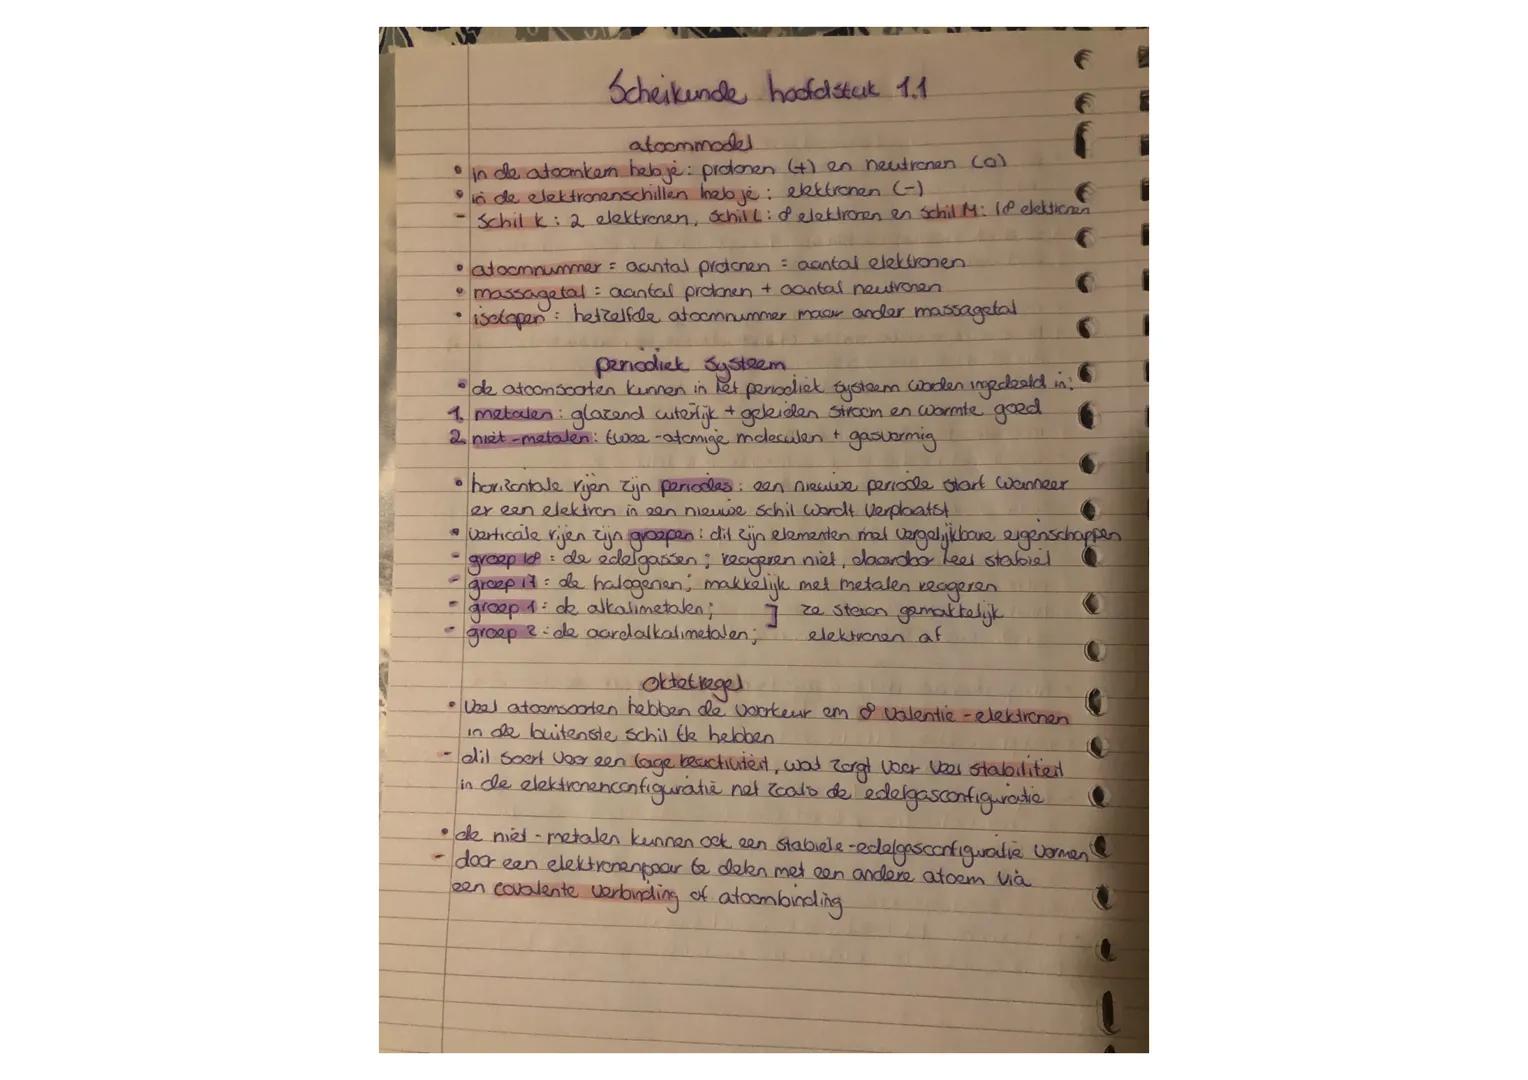 Scheikunde hoofdstuk 1.1
atoommodel
• in de atoomkern heb je: protonen (+) en neutronen (0)
• in de elektronenschillen heb je: elektronen (-)
- Schil K: 2 elektronen, Schil L: 8 elektronen en Schil M: 18 elektronen
• atoomnummer = aantal protonen = aantal elektronen
• massagetal = aantal protonen + aantal neutronen
• isotopen: hetzelfde atoomnummer maar ander massagetal
periodiek systeem
• de atoomsoorten kunnen in het periodiek systeem worden ingedeeld in:
1. metalen: glazend uiterlijk + geleiden stroom en warmte goed
2. niet-metalen: twee-atomige moleculen + gasvormig
• horizontale rijen zijn periodes: een nieuwe periode start wanneer
er een elektron in een nieuwe schil wordt verplaatst
• verticale rijen zijn groepen: dit zijn elementen met vergelijkbare eigenschappen
- groep 18: de edelgassen; reageren niet, daardoor heel stabiel
- groep 17: de halogenen; makkelijk met metalen reageren
- groep 1: de alkalimetalen; ] ze staan gemakkelijk
- groep 2: de aardalkalimetalen; elektronen af
Oktetregel
• Veel atoomsoorten hebben de voorkeur om 8 valentie-elektronen
in de buitenste schil te hebben
- dit soort voor een lage reactiviteit, wat zorgt voor veel stabiliteit
in de elektronenconfiguratie net zoals de edelgasconfiguratie
• de niet-metalen kunnen ook een stabiele-edelgasconfiguratie vormen
- door een elektronenpaar te delen met een andere atoom via
een covalente verbinding of atoombinding